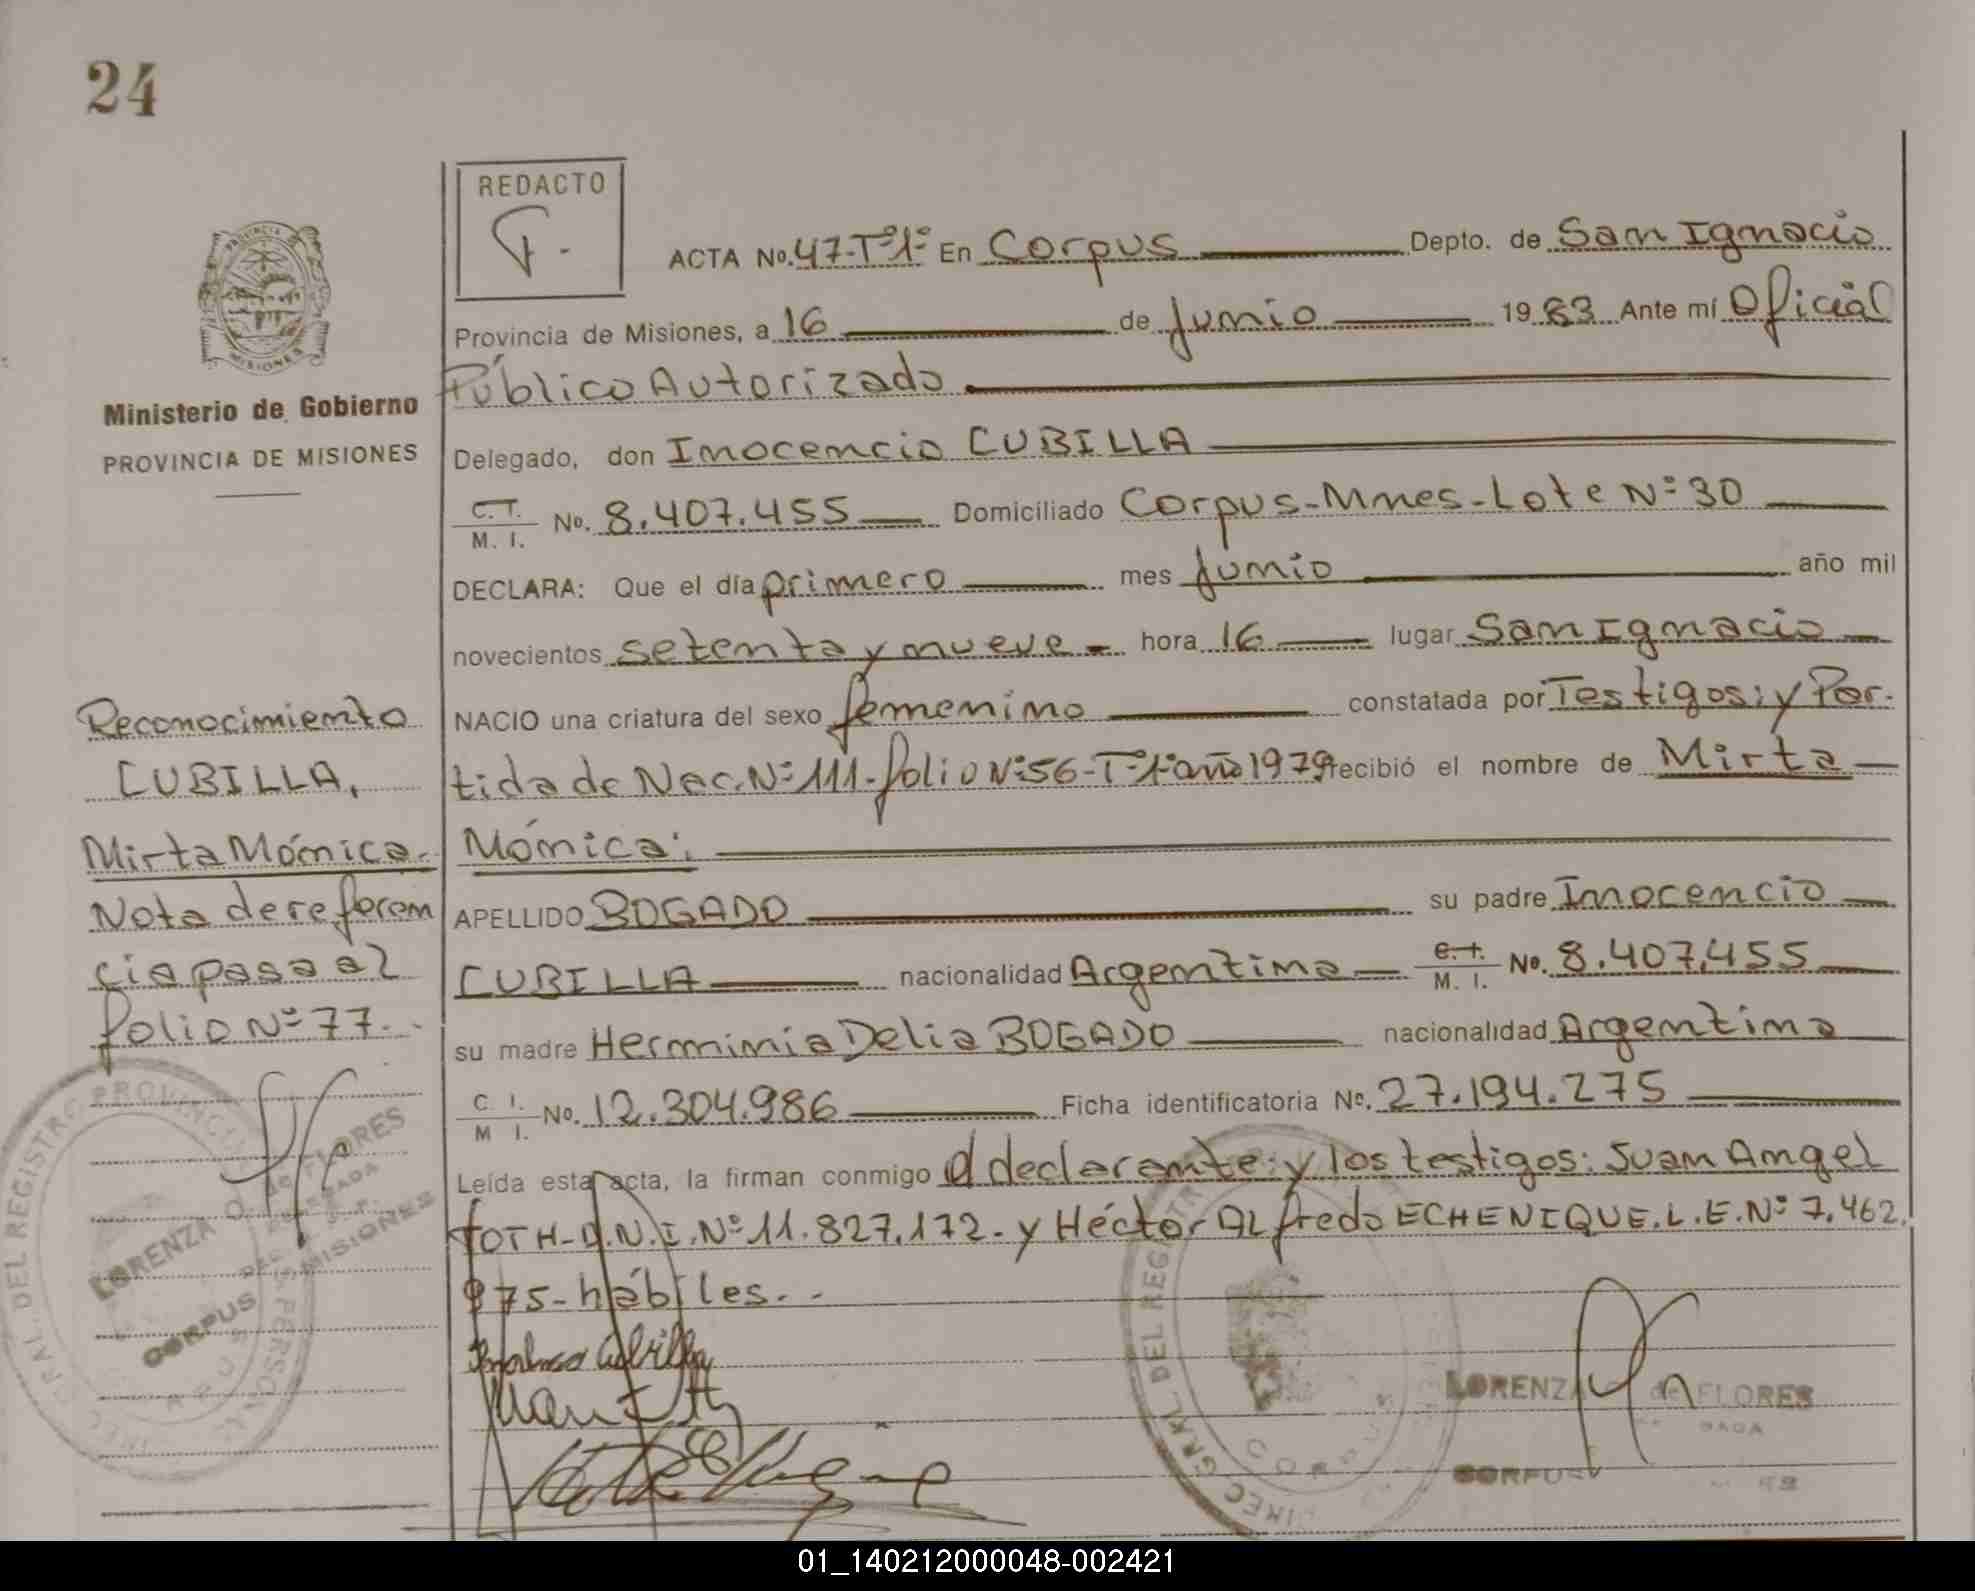 24
REDACTO
PROVINCIA DE
MISIONES
Ministerio de Gobierno
PROVINCIA DE MISIONES
Reconocimiento
CUBILLA,
Mirta Mónica.
Nota de referen
cia pasa al
folio Nº 77.
ACTA No. 47-Tº1º En Corpus Depto. de San Ignacio
Provincia de Misiones, a 16 de Junio 1983 Ante mí Oficial
Público Autorizado
Delegado, don Inocencio CUBILLA
C.I. M. I. No. 8.407.455 Domiciliado Corpus-Mnes-Lote Nº 30
DECLARA: Que el día primero mes Junio año mil
novecientos setenta y nueve - hora 16 lugar San Ignacio
NACIO una criatura del sexo femenino constatada por Testigos: y Par-
tida de Nac. Nº 111-folio Nº 56-Tº1º año 1979 recibió el nombre de Mirta
Mónica:
APELLIDO BOGADO su padre Inocencio
CUBILLA nacionalidad Argentina C.I. M. I. No. 8.407.455
su madre Herminia Delia BOGADO nacionalidad Argentina
C. I. M I. No. 12.304.986 Ficha identificatoria No. 27.194.275
Leída esta acta, la firman conmigo el declarante: y los testigos: Juan Angel
TOTH-D.N.I. Nº 11.827.172- y Héctor ALfredo ECHENIQUE. L.E. Nº 7.462.
975-hábiles.-
LORENZA O. de FLORES
MISIONES
CORPUS
LORENZA de FLORES
CORPUS
01_140212000048-002421